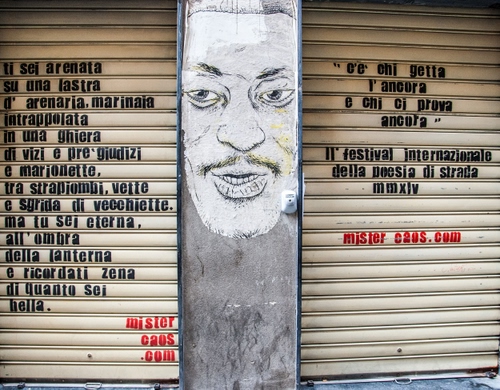 ti sei arenata
su una lastra
d' arenaria, marinaia
intrappolata
in una ghiera
di vizi e pre*giudizi
e marionette,
tra strapiombi, vette
e sgrida di vecchiette.
ma tu sei eterna,
all'ombra
della lanterna
e ricordati zena
di quanto sei
bella.
mister
caos
.com
" c'è chi getta
l'ancora
e chi ci prova
ancora "
II° festival internazionale
della poesia di strada
mmxiv
mister caos.com